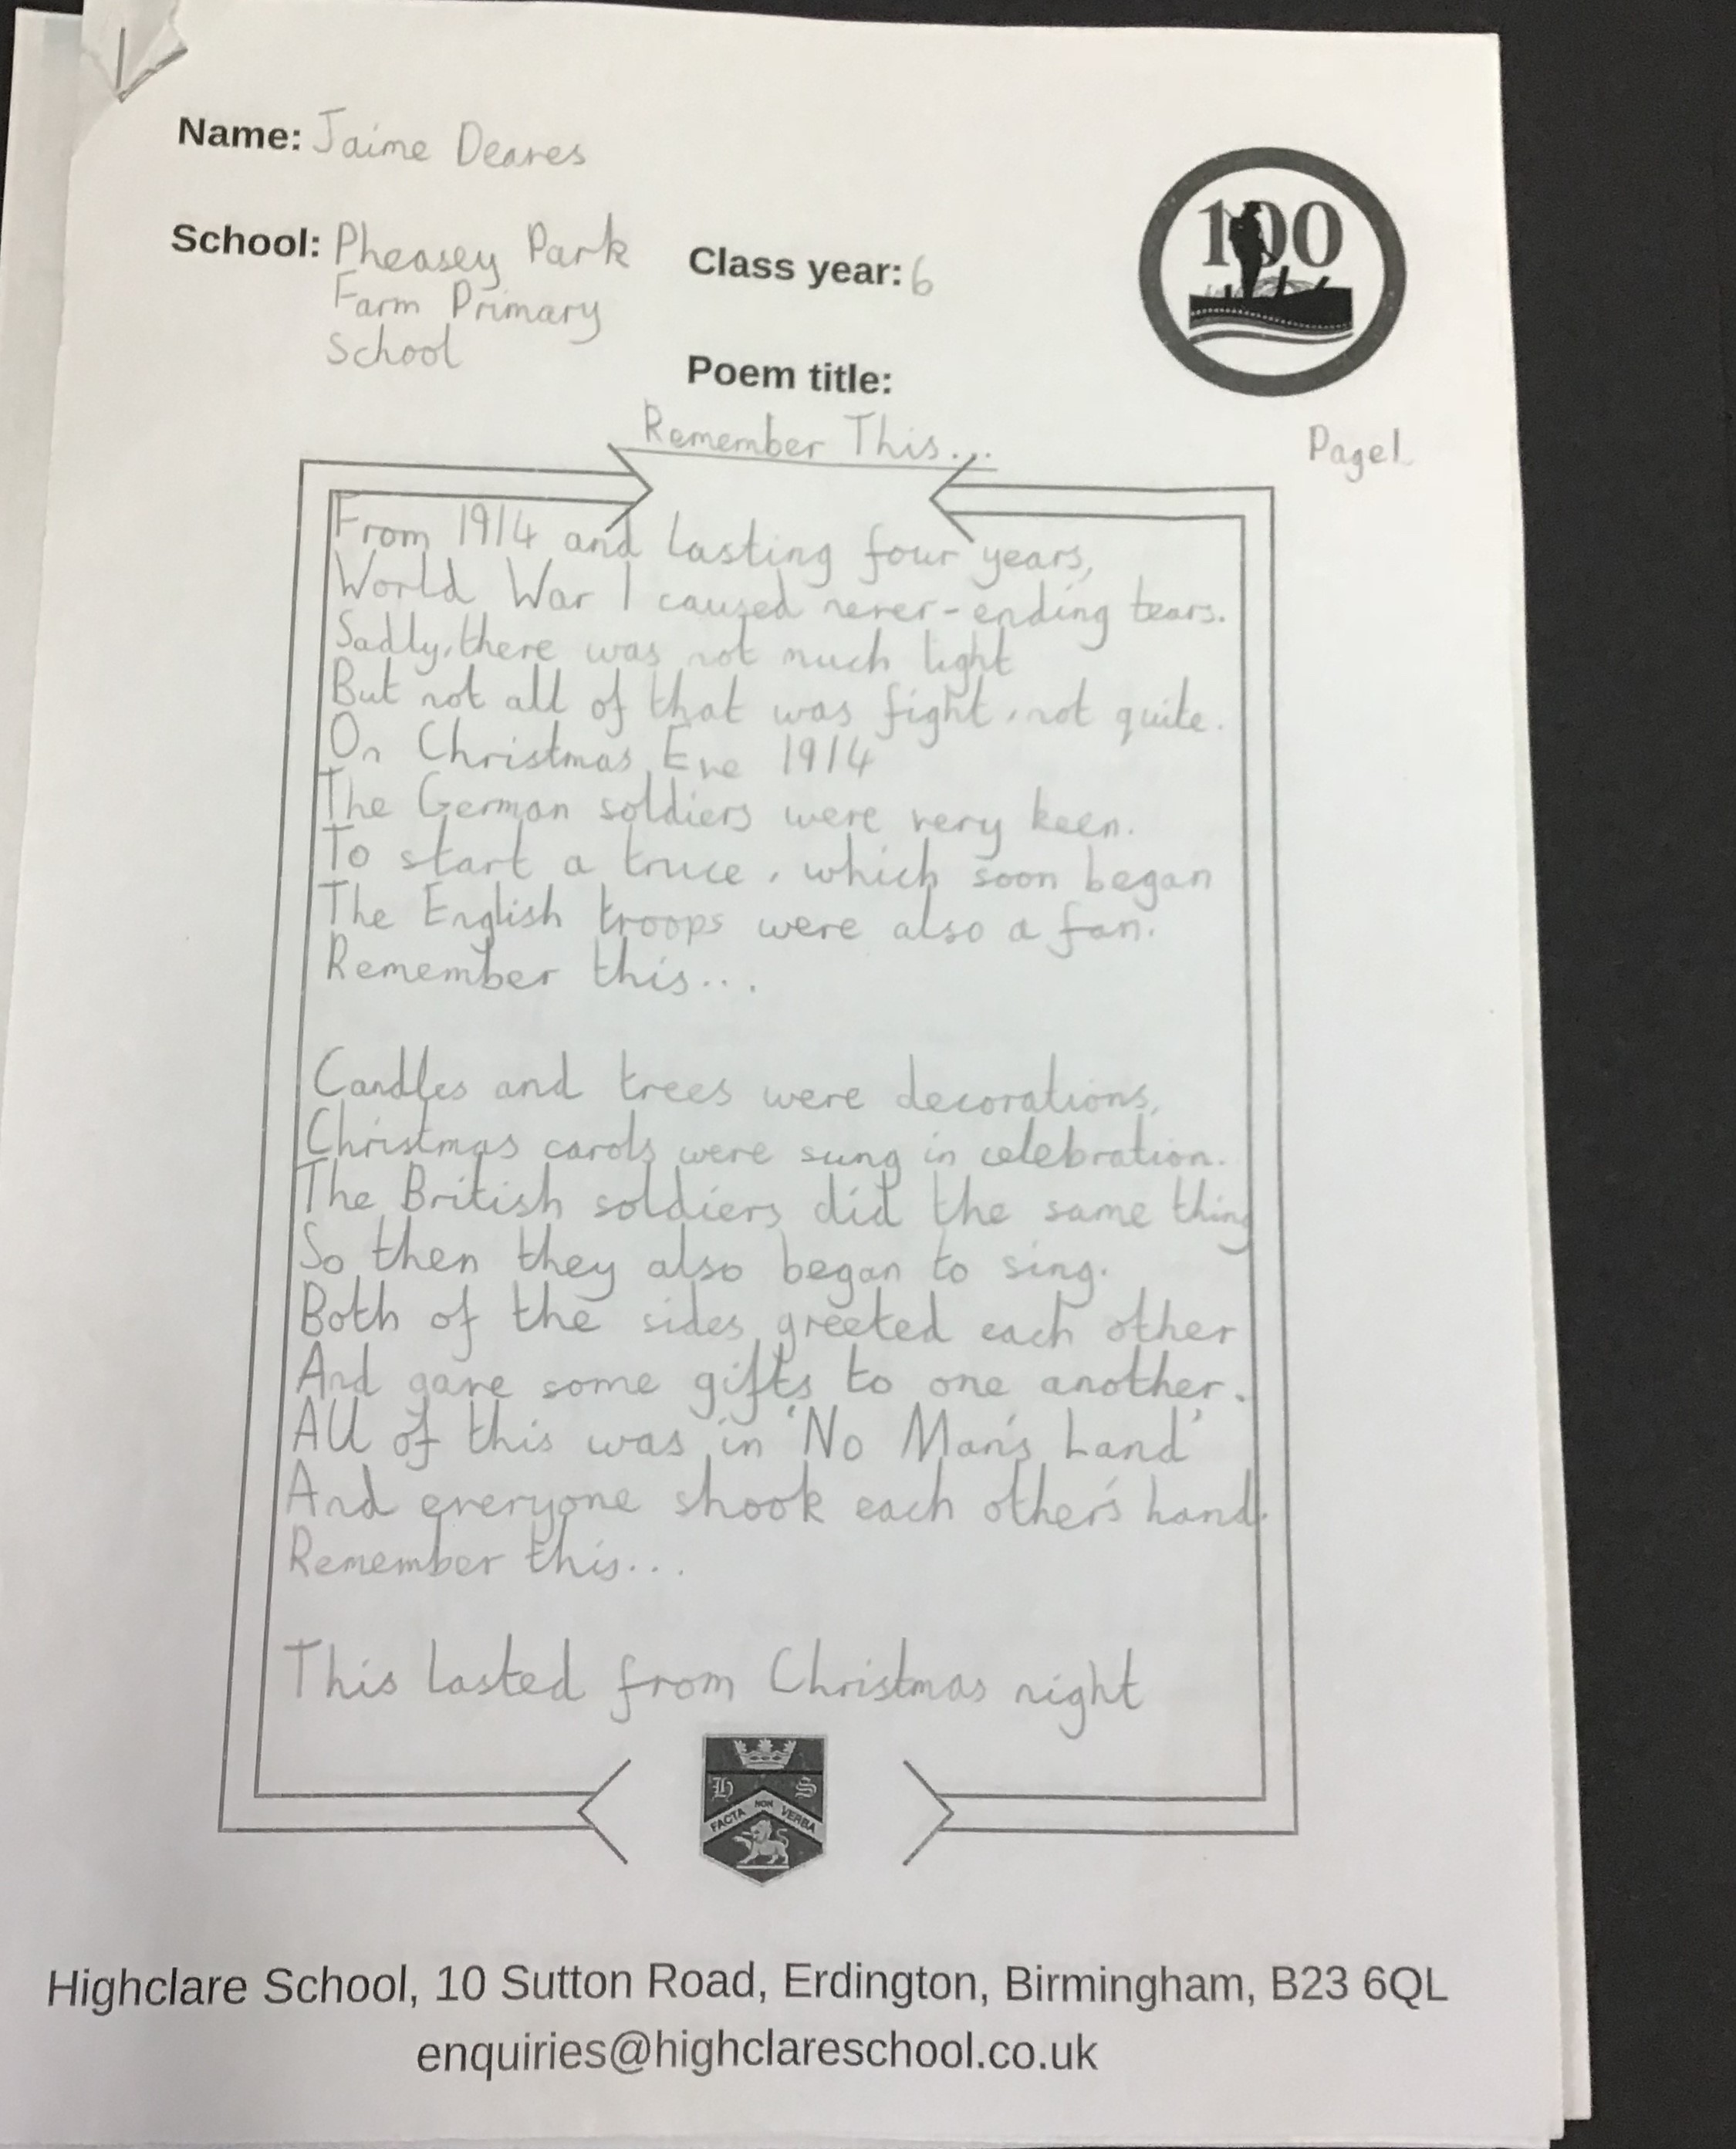 Name: Jaime Deares
School: Pheasey Park
Farm Primary
School
Class year: 6
100
Poem title:
Remember This...
Page 1
From 1914 and lasting four years,
World War I caused never-ending tears.
Sadly, there was not much light
But not all of that was fight, not quite.
On Christmas Eve 1914
The German soldiers were very keen.
To start a truce, which soon began
The English troops were also a fan.
Remember this...
Candles and trees were decorations,
Christmas carols were sung in celebration.
The British soldiers did the same thing
So then they also began to sing.
Both of the sides greeted each other
And gave some gifts to one another.
All of this was in 'No Man's Land'
And everyone shook each other's hand.
Remember this...
This lasted from Christmas night
H S
FACTA NON VERBA
Highclare School, 10 Sutton Road, Erdington, Birmingham, B23 6QL
enquiries@highclareschool.co.uk